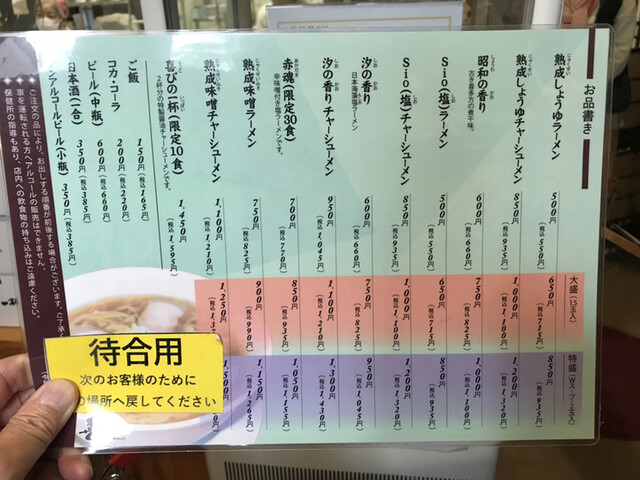 お品書き
大盛(1.5玉入)
特盛(Wスープ・2玉入)
熟成しょうゆラーメン 500円(税込550円) 650円(税込715円) 850円(税込935円)
熟成しょうゆチャーシューメン 850円(税込935円) 1,000円(税込1,100円) 1,200円(税込1,320円)
昭和の香り 600円(税込660円) 750円(税込825円)
古き喜多方の煮干味。
Sio(塩)ラーメン 500円(税込550円) 650円(税込715円) 850円(税込935円)
Sio(塩)チャーシューメン 850円(税込935円) 1,000円(税込1,100円) 1,200円(税込1,320円)
汐の香り 600円 750円 950円(税込1,045円)
日本海藻塩ラーメン
汐の香りチャーシューメン 950円(税込1,045円) 1,100円(税込1,210円) 1,300円
赤魂(限定30食) 700円(税込770円) 850円(税込935円) 1,050円
辛味噌付き塩ラーメンです。
熟成味噌ラーメン 750円(税込825円) 900円(税込990円) 1,150円(税込1,265円)
熟成味噌チャーシューメン 1,100円(税込1,210円) 1,250円
喜びの一杯(限定10食) 1,450円(税込1,595円)
2杯分の特製醤油チャーシューメンです。
ご飯 150円(税込165円)
コカ・コーラ 200円(税込220円)
ビール(中瓶) 600円(税込660円)
日本酒(一合) 350円(税込385円)
ノンアルコールビール(小瓶) 350円(税込385円)
ご注文の品により、お出しする順番が前後する場合がございます。ご了承く
車を運転される方へアルコールの販売はできません。
保健所の指導もあり、店内への飲食物の持ち込みはご遠慮ください。
待合用
次のお客様のために
の場所へ戻してください